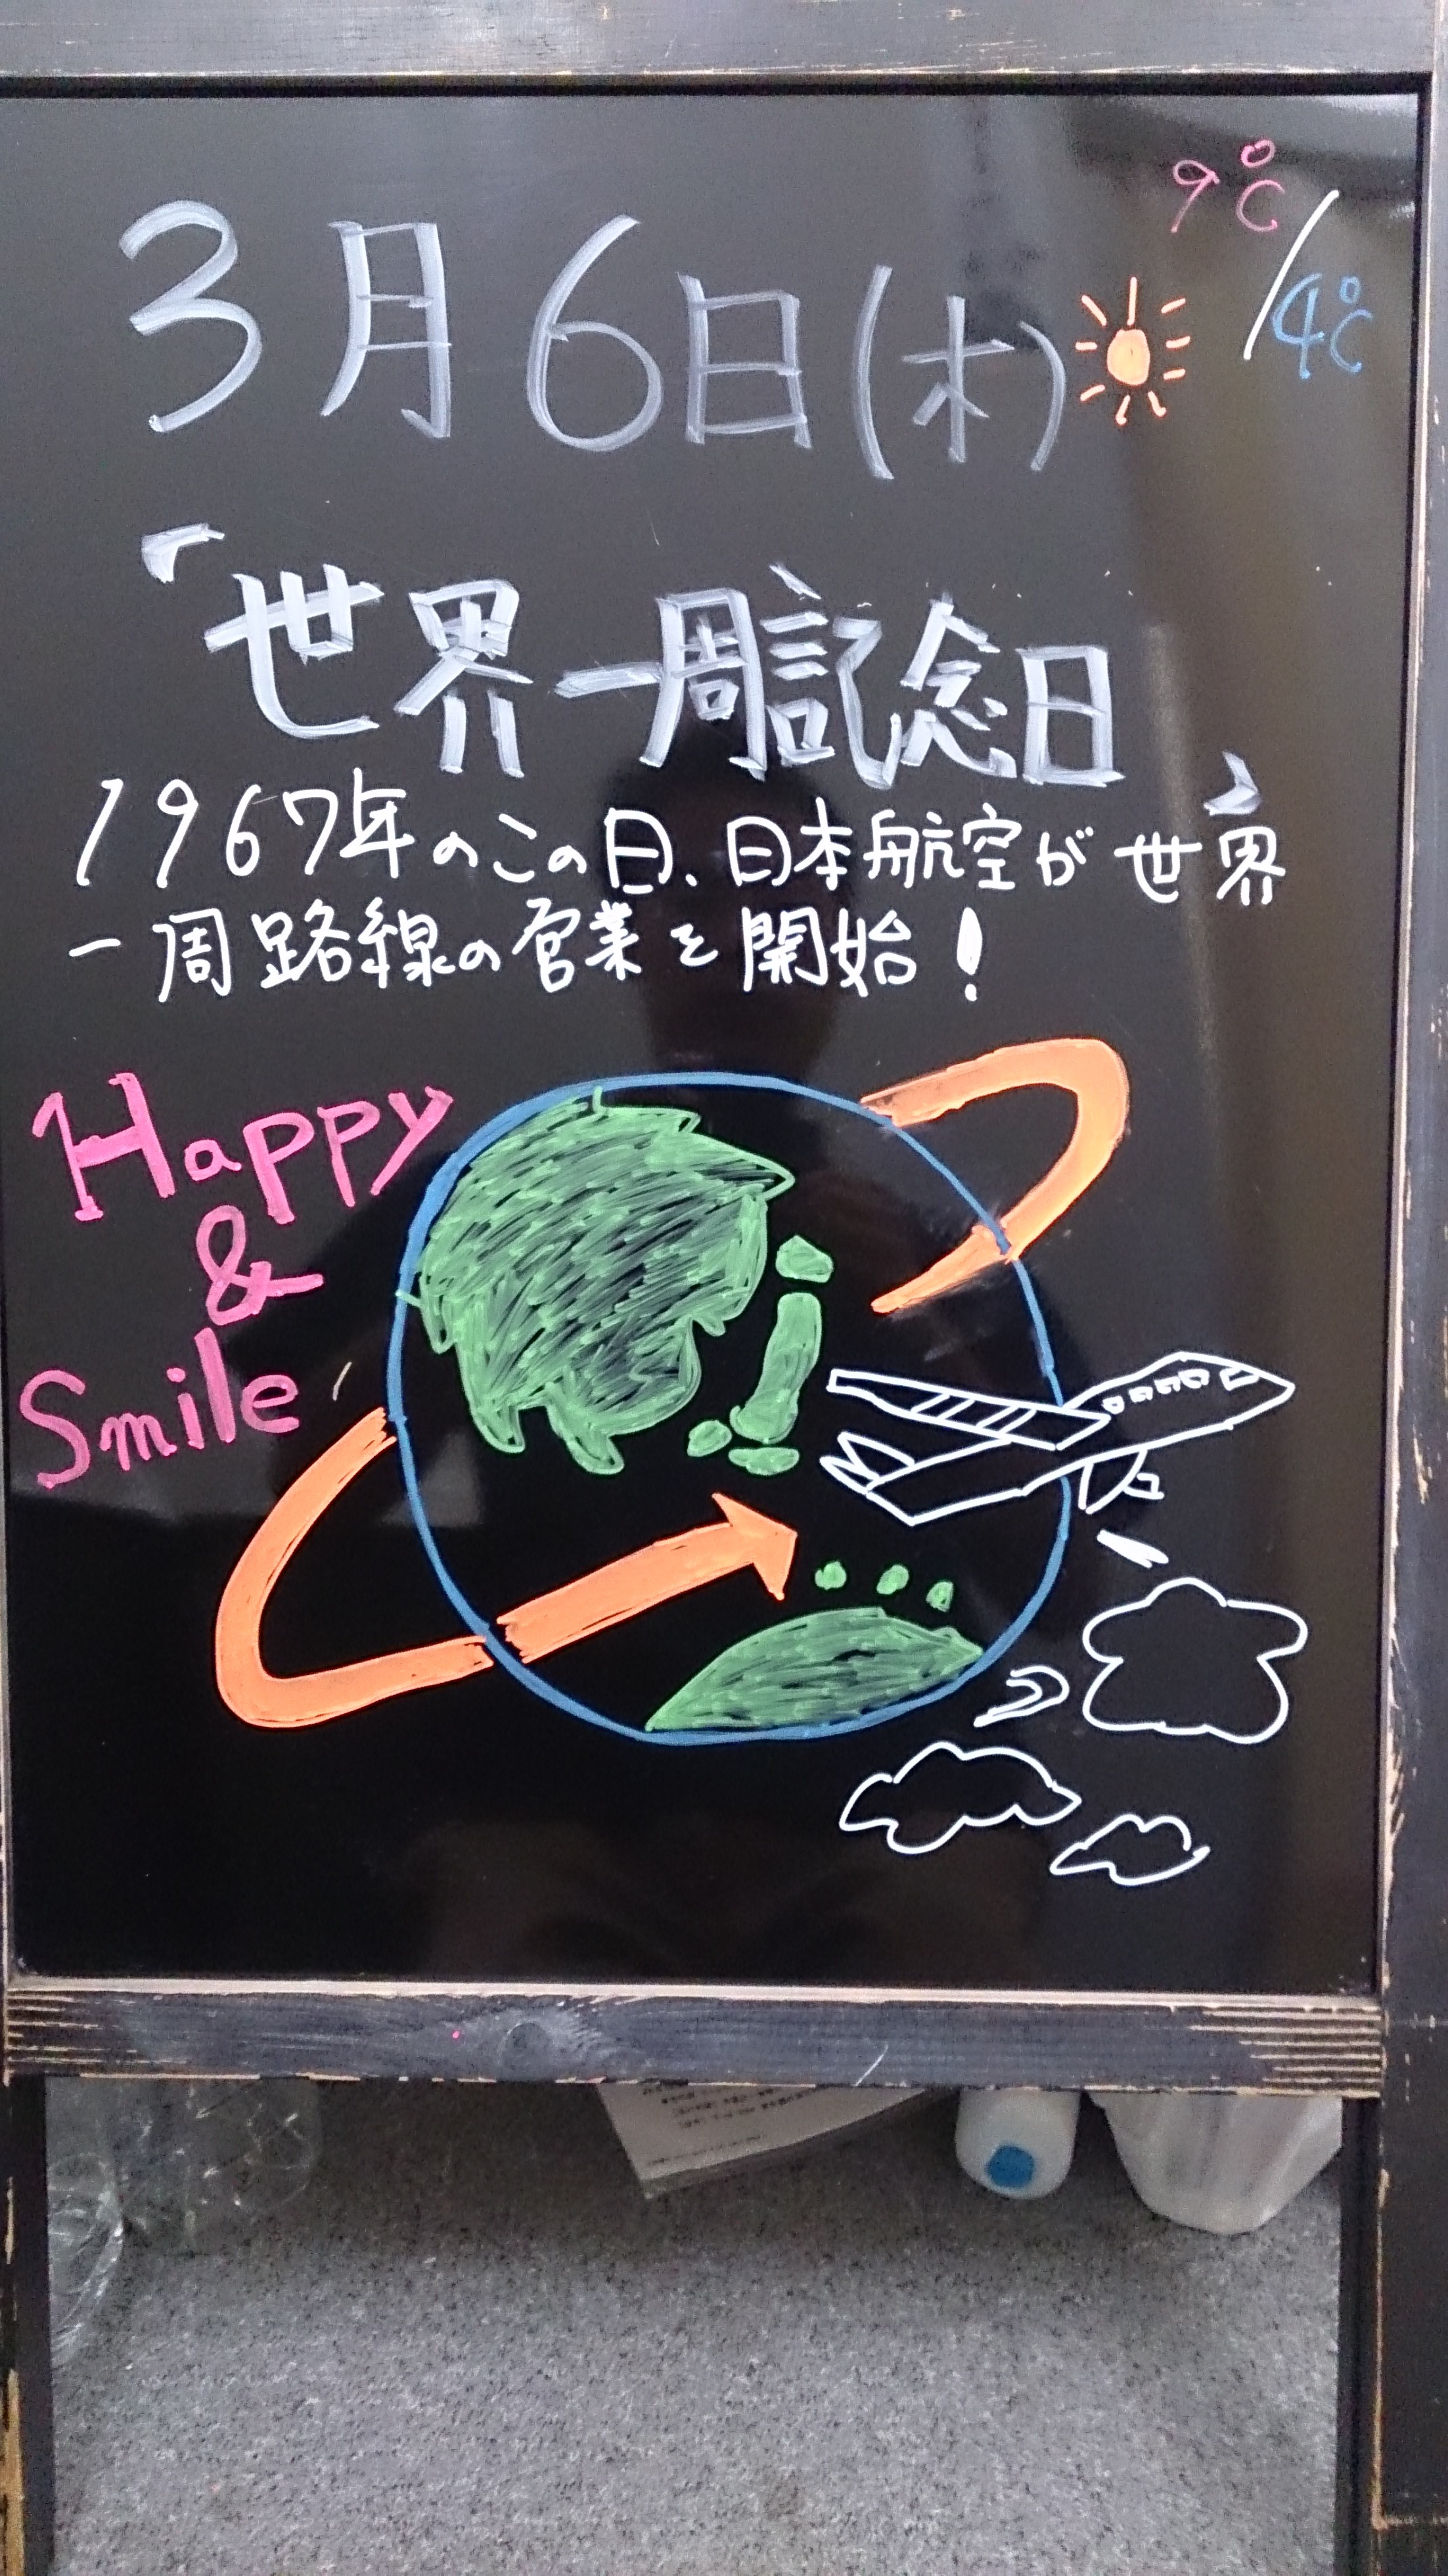 9℃/4℃
3月6日(木)
「世界一周記念日」
1967年のこの日、日本航空が世界
一周路線の営業を開始!
Happy
&
Smile